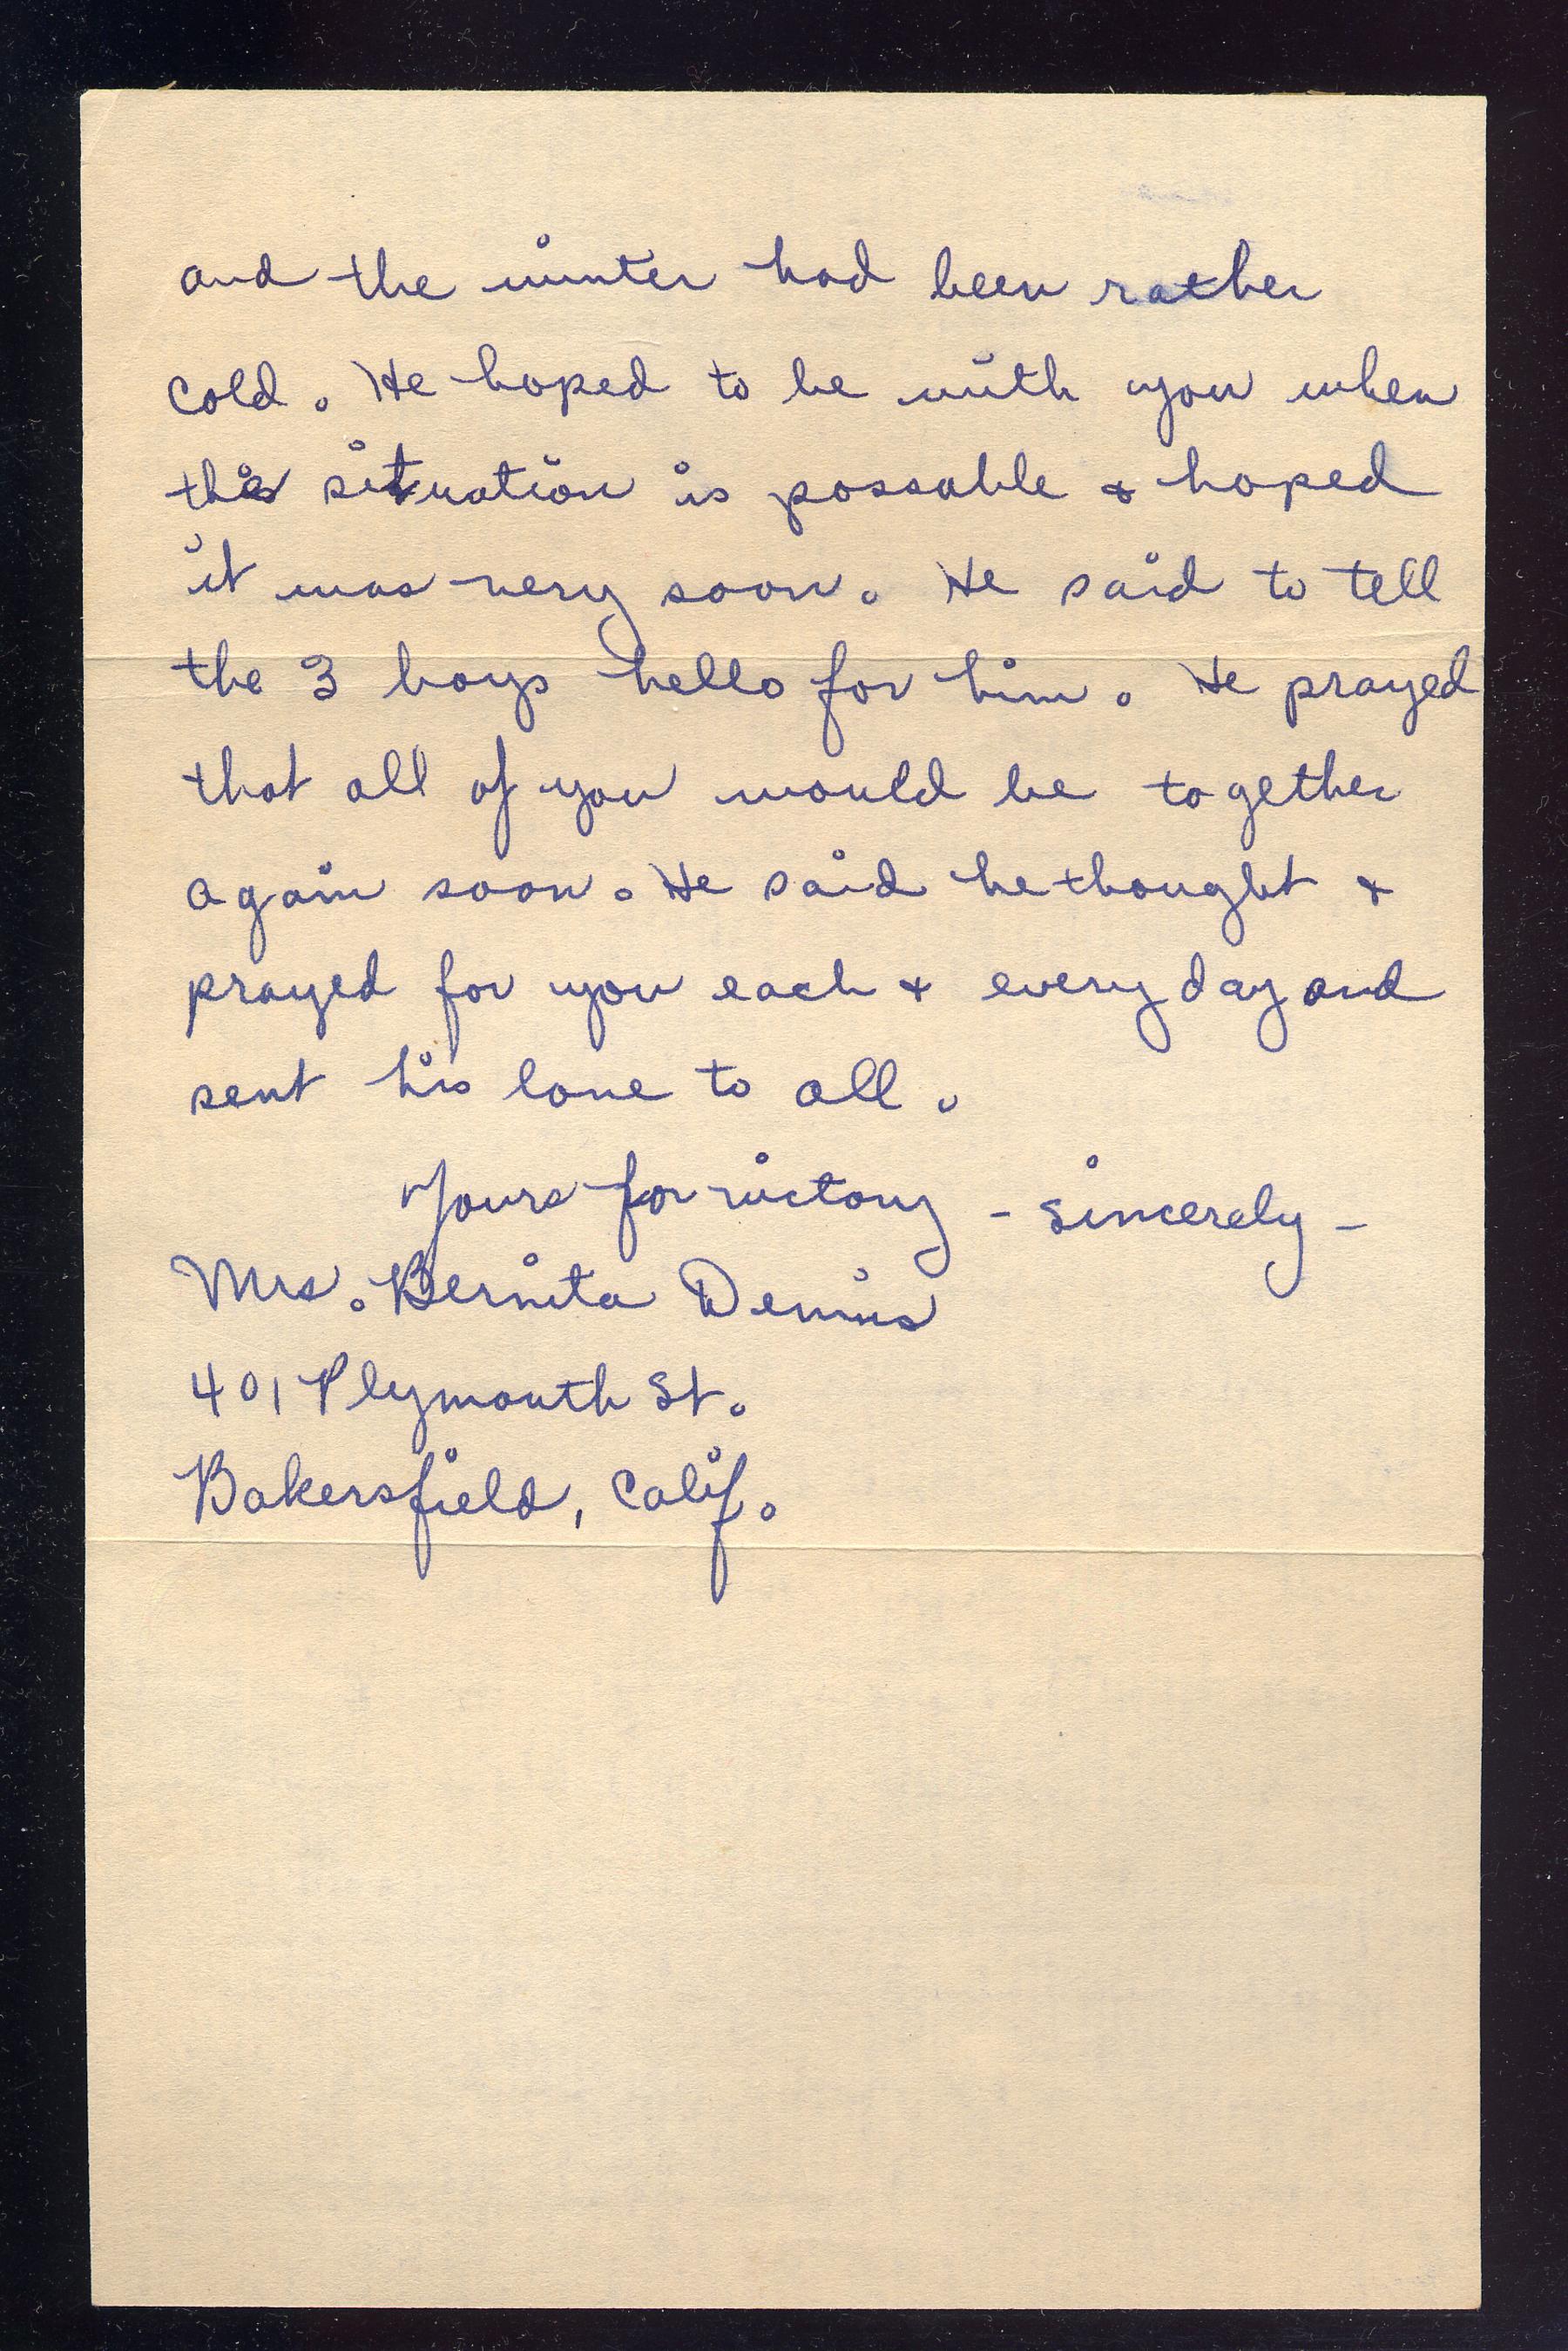 and the winter had been rather
cold. He hoped to be with you when
this situation is possable & hoped
it was very soon. He said to tell
the 3 boys hello for him. He prayed
that all of you would be together
again soon. He said he thought &
prayed for you each & every day and
sent his love to all.
Yours for victory - sincerely -
Mrs. Bernita
401 Plymouth St.
Bakersfield, Calif.